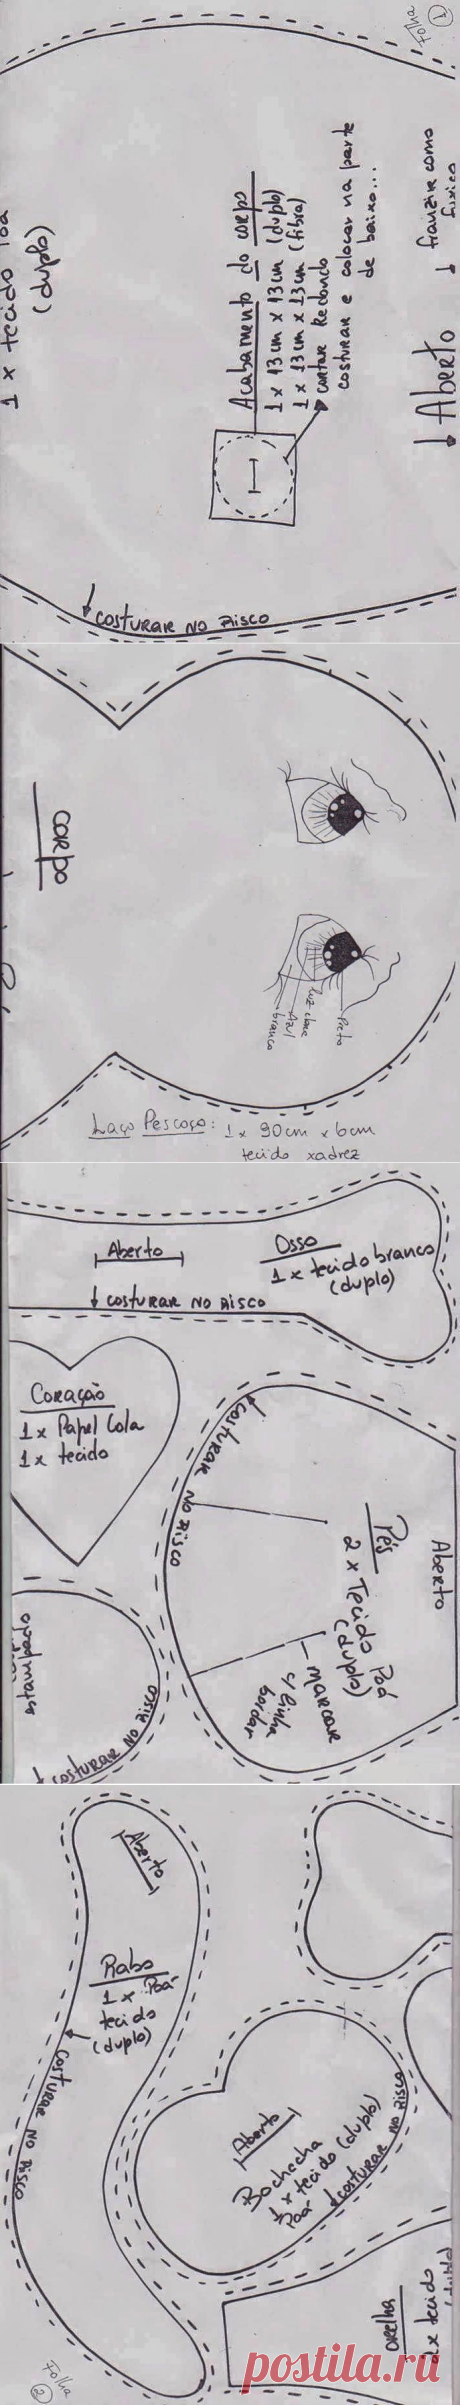 Folha
1
franzir como
fuxico
↓ Aberto
Acabamento do corpo
1 x 13 cm x 13 cm (duplo)
1 x 13 cm x 13 cm (fibra)
cortar Redondo
costurar e colocar na parte
de baixo...
1 x tecido
(duplo)
COSTURAR NO RISCO
Corpo
Preto
luz clara
Azul
branco
Laço Pescoço: 1 x 90 cm x 6 cm
tecido xadrez
Aberto
COSTURAR NO RISCO
Osso
1 x tecido branco
(duplo)
Coração
1 x Papel Cola
1 x tecido
COSTURAR NO RISCO
Aberto
Pés
2 x Tecido Poá
(duplo)
MARCAR
c/ linha
bordar
estampado
COSTURAR NO RISCO
Aberto
Rabo
1 x Poá
tecido
(duplo)
COSTURAR NO RISCO
Aberto
Bochecha
1 x tecido (duplo)
Poá
COSTURAR NO RISCO
orelha
2 x tecido
(duplo)
Folha
2
postila.ru